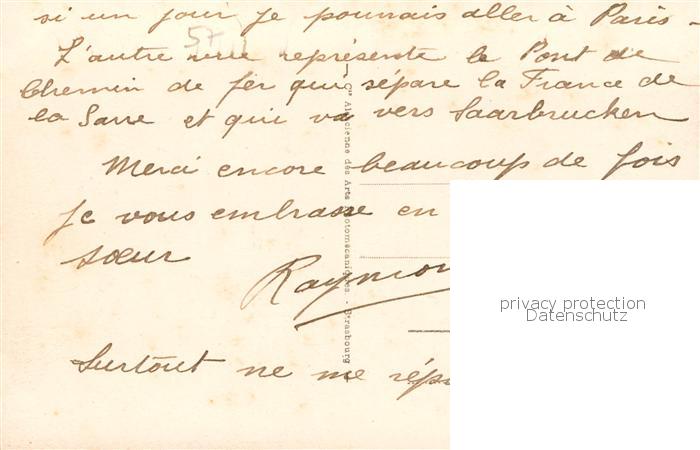 si un jour je pourrais aller à Paris -
57
L'autre vue représente le Pont de
Chemin de fer qui sépare la France de
la Sarre et qui va vers Saarbrucken
Merci encore beaucoup de fois
Je vous embrasse en
sœur
Raymon
Surtout ne me rép
Cie Alsacienne des Arts Photomécaniques. - Strasbourg
privacy protection
Datenschutz